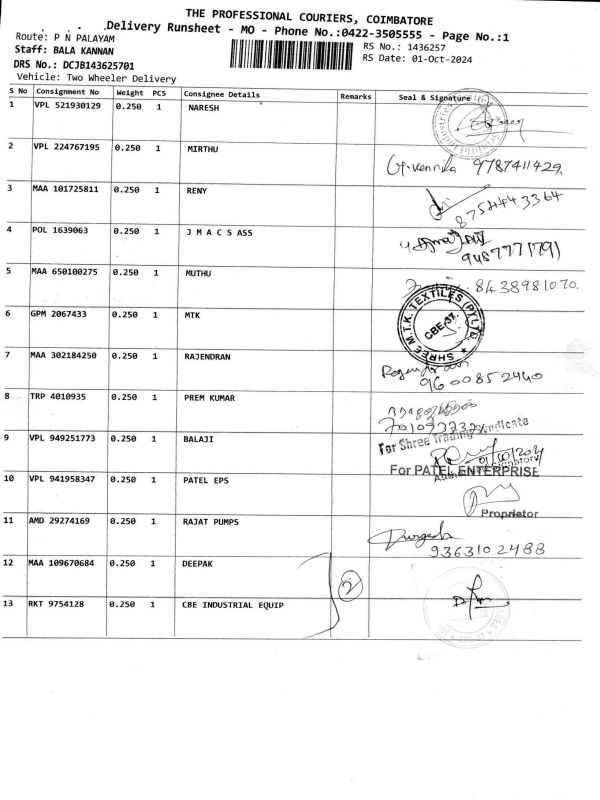 THE PROFESSIONAL COURIERS, COIMBATORE
Delivery Runsheet - MO - Phone No.:0422-3505555 - Page No.:1
Route: P N PALAYAM
RS No.: 1436257
Staff: BALA KANNAN
RS Date: 01-Oct-2024
DRS No.: DCJB143625701
Vehicle: Two Wheeler Delivery
S No Consignment No Weight PCS Consignee Details Remarks Seal & Signature
1 VPL 521930129 0.250 1 NARESH
2 VPL 224767195 0.250 1 MIRTHU
9787411429.
3 MAA 101725811 0.250 1 RENY
8754443364
4 POL 1639063 0.250 1 J M A C S ASS
5 MAA 650100275 0.250 1 MUTHU
8438981070.
6 GPM 2067433 0.250 1 MTK
SHREE M.T.K. TEXTILES (P) LTD.
CBE-37.
7 MAA 302184250 0.250 1 RAJENDRAN
9600852440
8 TRP 4010935 0.250 1 PREM KUMAR
For Shree Trading Syndicate
9 VPL 949251773 0.250 1 BALAJI
For PATEL ENTERPRISE
10 VPL 941958347 0.250 1 PATEL EPS
Proprietor
11 AMD 29274169 0.250 1 RAJAT PUMPS
Durgesh
9363102488
12 MAA 109670684 0.250 1 DEEPAK
2
13 RKT 9754128 0.250 1 CBE INDUSTRIAL EQUIP